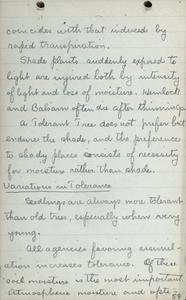 coincides with that induced by
rapid transpiration.
Shade plants suddenly exposed to
light are injured both by intensity
of light and loss of moisture. Hemlock
and Balsam often die after thinnings
A Tolerant Tree does not prefer but
endures the shade, and the preferences
to shady places consists of necessity
for moisture rather than shade.
Variations in Tolerance
Seedlings are always more tolerant
than old trees, especially when very
young.
All agencies favoring assimil-
ation increases tolerance. Of these
soil moisture is the most important
Atmosphere moisture and